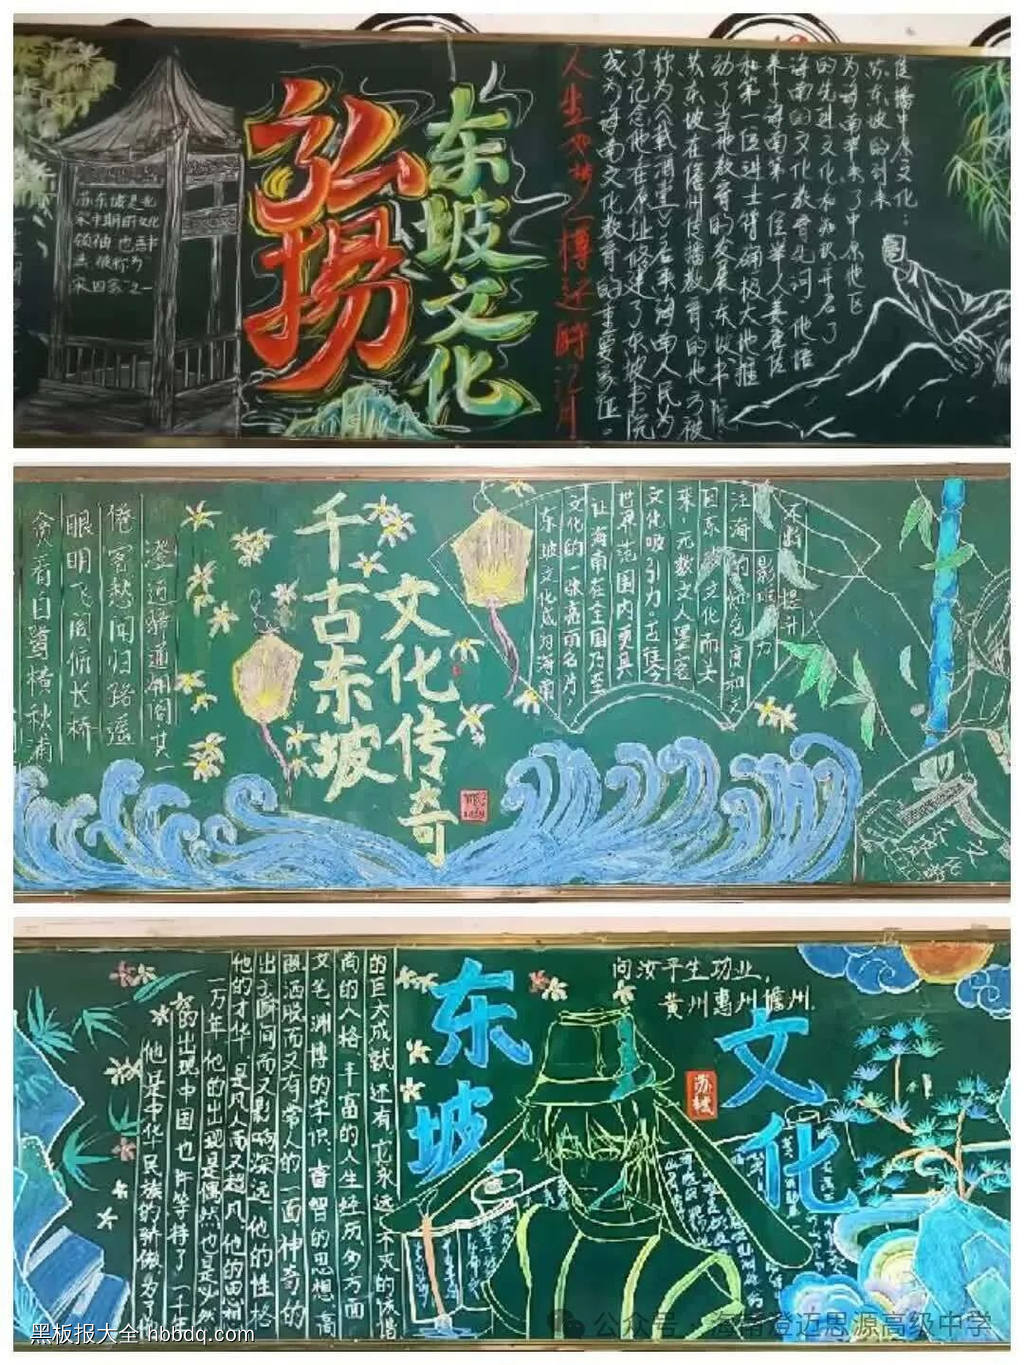 弘扬
东坡文化
苏东坡是北
宋中期的文化
领袖
被称为
宋四家之一
人生如梦一樽还酹江月
传播中原文化：
苏东坡的到来
为海南带来了中原地区
的先进文化和知识开启了
海南的文化教育先河
来了海南第一位举人姜唐佐
和第一位进士符确极大地推
动了当地教育的发展
苏东坡在儋州传播教育的地方被
称为《载酒堂》后来海南人民为
了记念他在原址修建了东坡书院
成为海南文化教育的重要象征。
澄迈驿通潮阁其一
倦客愁闻归路遥
眼明飞阁俯长桥
贪看白鹭横秋浦
千古东坡
文化传奇
影响力
提升
注海
的知名度和
因东坡文化而去
来，无数文人墨客
文化吸引力
世界范围内更具
让海南在全国乃至
文化的一张亮丽名片，
东坡文化成为海南
东坡
文化
问汝平生功业，
黄州惠州儋州。
苏轼
的巨大成就还有
尚的人格、丰富的人生经历多方面
文笔、渊博的学识、睿智的思想、高
眼洒脱而又有常人的一面神奇的
出于瞬间而又影响深远他的性格
他的才华是凡人而又超凡他的思想
一万年他的出现是偶然也是必然
的出现中国也许等待了一千年
他是中华民族的骄傲
黑板报大全 hbbdq.com
公众号·海南澄迈思源高级中学